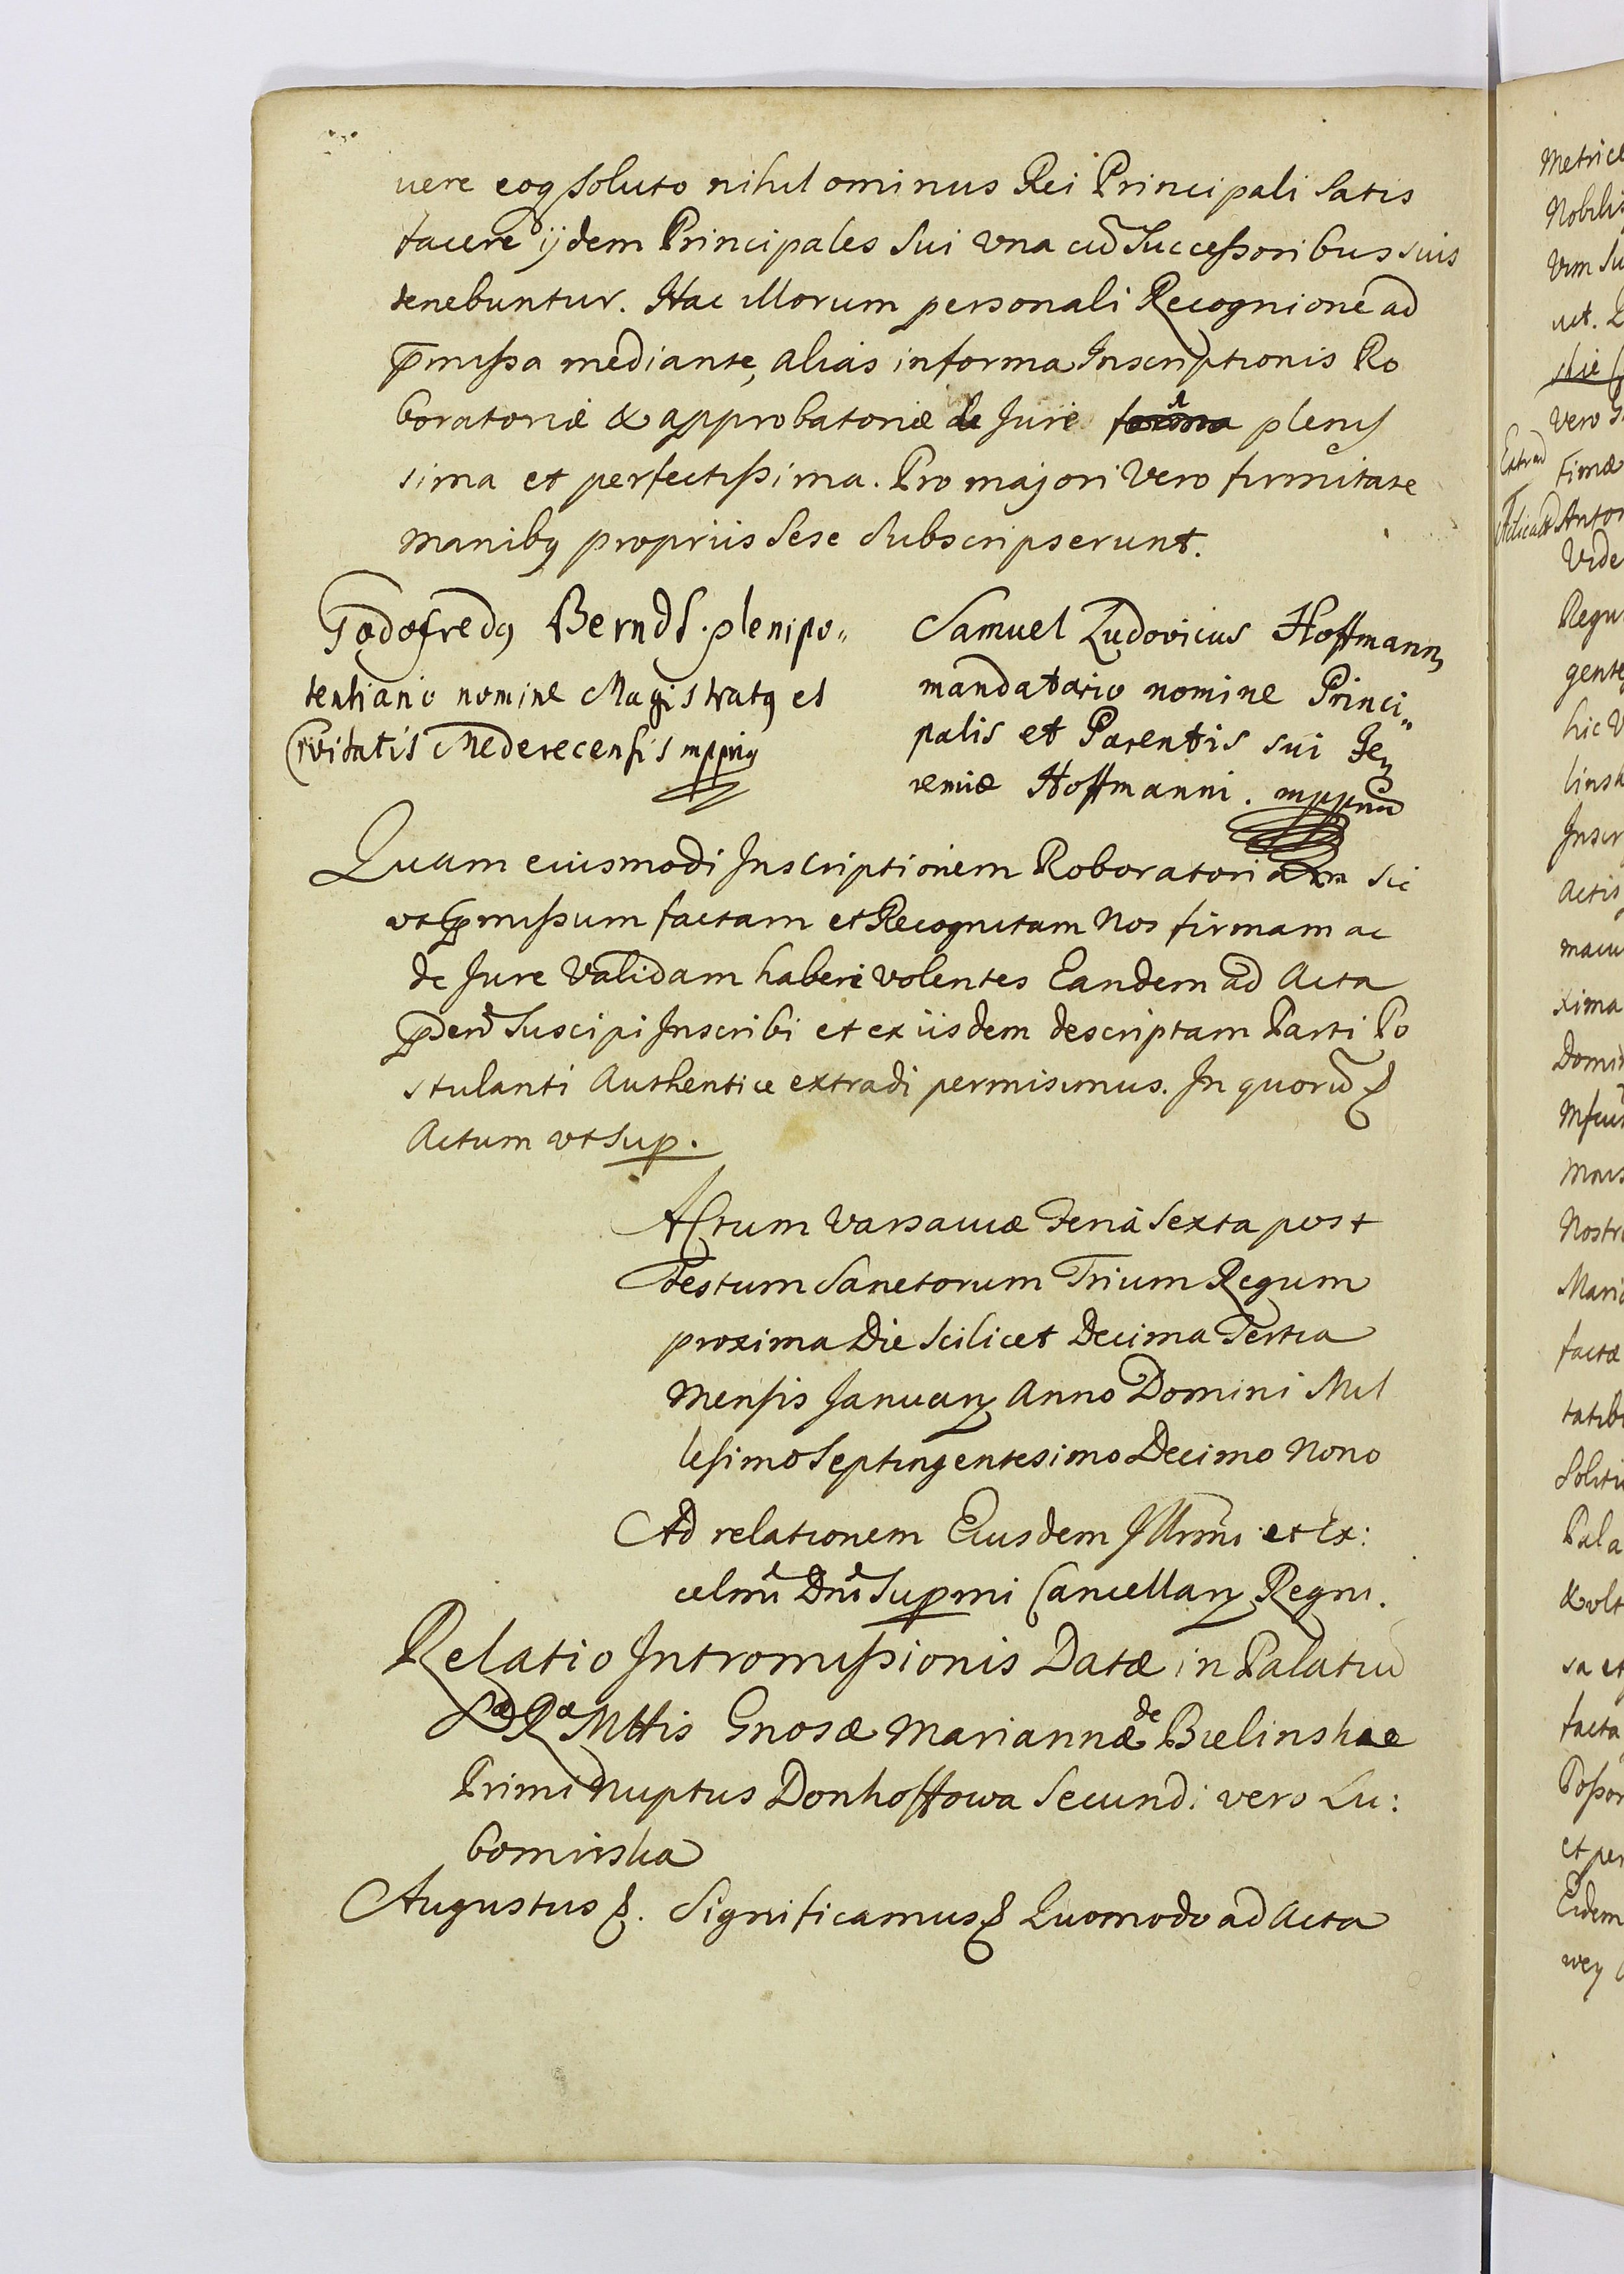 uere eoq soluto nihilominus Rei Principali Satis
facere ijdem Principales Sui Vna cũ Successoribus suis
tenebuntur. Hac illorum personali Recognione ad
p̄missa mediante, alias in forma Inscriptionis Ro
boratoriæ & approbatoriæ de Jure plenis
sima et perfectissima. Pro majori Vero firmitate
manibq propriis Sese Subscripserunt.
Godofredq Berndt. plenipo„
tentiario nomine Magistratq et
Civitatis Mederecensis mpprig
Samuel Ludovicus Hoffmann,
mandatario nomine Princi„
palis et Parentis sui Je„
remiæ Hoffmanni. mppria
Quam eiusmodi Inscriptionem Roboratoriam sic
vt p̄missum factam et Recognitam Nos firmam ac
de Jure Validam haberi volentes Eandem ad Acta
p̄sent Suscipi Inscribi et ex iisdem descriptam Parti Po
stulanti Authentice extradi permisimus. In quorũ &
Actum vt sup.
Actum Varsaviæ Feria Sexta post
Festum Sanctorum Trium Regum
proxima Die Scilicet Decima Tertia
Mensis Januarij Anno Domini Mil
lesimo Septingentesimo Decimo Nono
Ad relationem Eiusdem Illrmi et Ex:
celmi Dni Supmi Cancellarij Regni.
Relatio Intromissionis Datæ in Palatiũ
Sæ Ræ Mttis Gnosæ Mariannæ de Bielinskae
Primi Nuptus Donhoffowa Secundi vero Lu:
bomirska
Augustus &. Significamus & Quomodo ad Acta